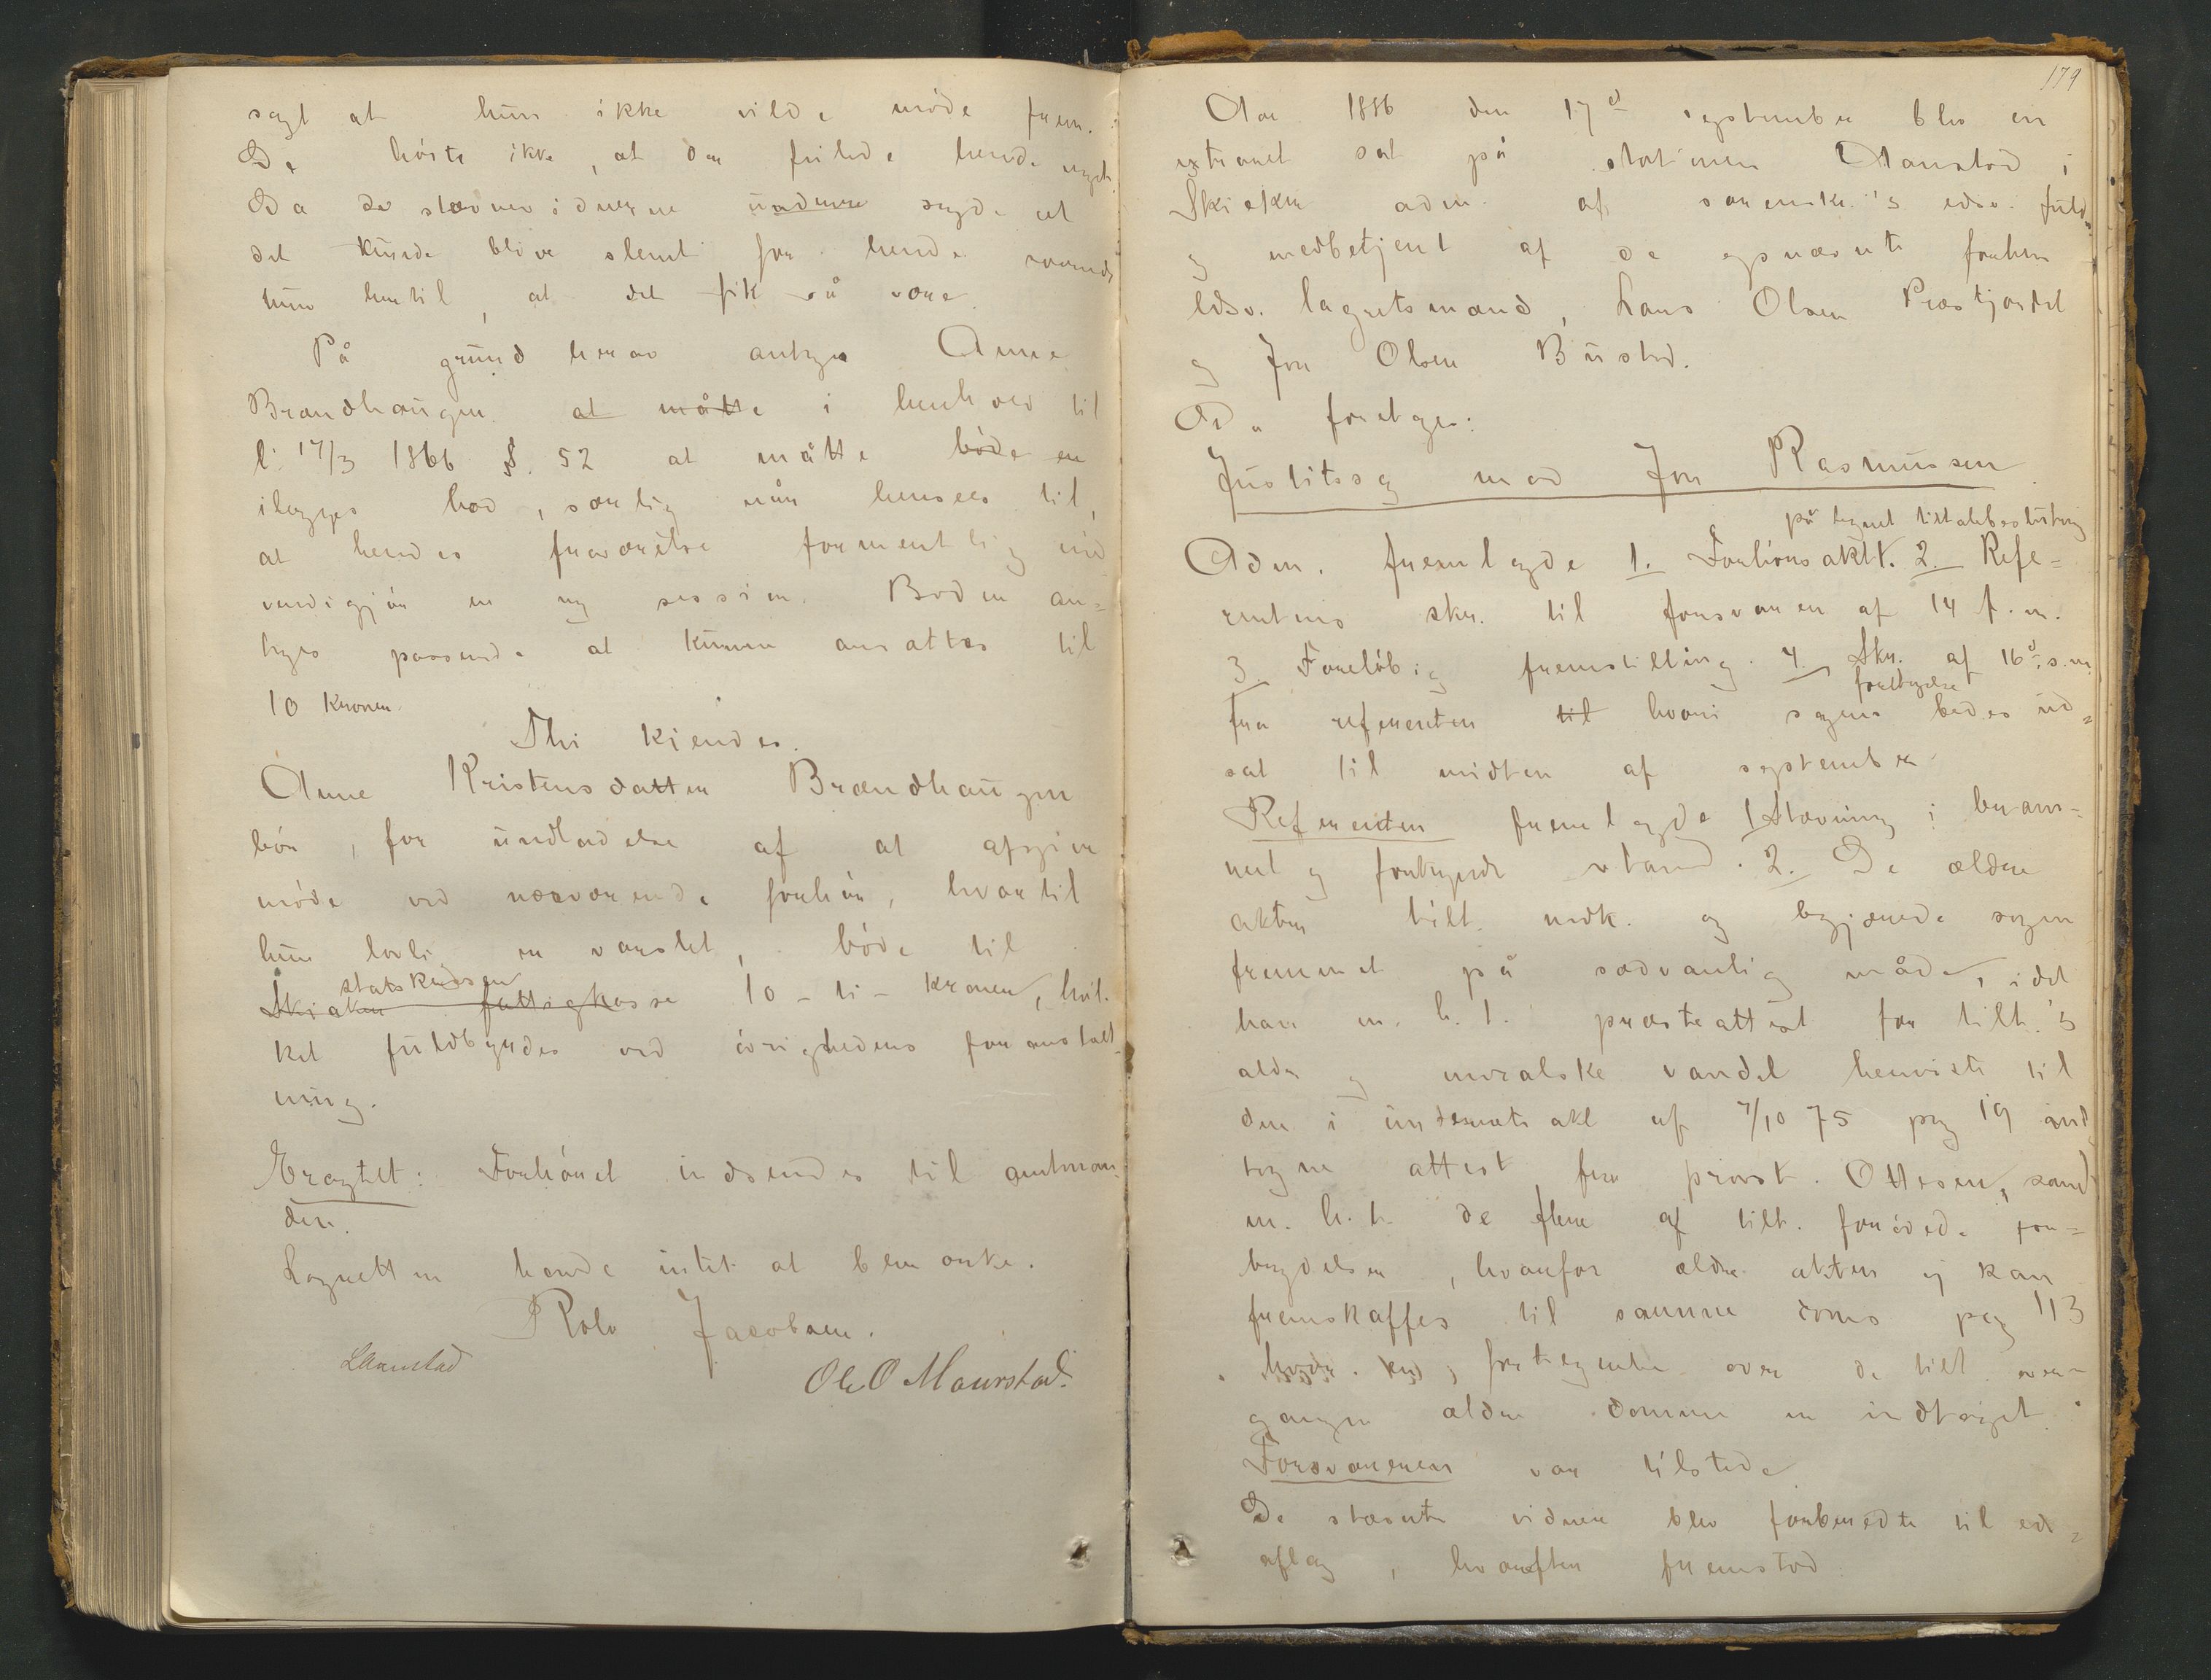 sagt at hun ikke vilde møde frem.
De hørte ikke, at der feilede hende noget.
Da de stævnevidnerne sagde at
det kunde blive slemt for hende svarede
hun hertil, at det fik så være.
På grund herav antages Anne
Brændhaugen at måtte i henhold til
l. 17/3 1866 §. 52 at måtte bøde en
ilægges bod, særlig når hensees til,
at hendes fraværelse formentlig nød
vendiggjør en ny session. Boden an-
tages passende at kunne ansættes til
10 Kroner.
Thi kjendes.
Anne Kristensdatter Brændhaugen
bør, for undladelse af at afgive
møde ved nærværende forhør, hvortil
hun lovlig er varslet, bøde til
statskassen
Skiaker fattigkasse 10 - ti - kroner, hvil-
ket fuldbyrdes ved øvrighedens foranstalt-
ning.
Eragtet: Forhøret indsendes til amtman-
den.
Lagretten havde intet at bemærke.
Rolv Jacobsen.
LAanstad
Ole O Maurstad.
179
Aar 1886 den 17de september blev en
extraret sat på stationen Aanstad i
Skiaker adm. af sorenskr.'s edsv. fuldm.
og medbetjent af de opnævnte forhen
edsv. lagretsmænd, Hans Olsen Præstjordet
og Jon Olsen Bustad.
Da foretages:
Justitssag mod Jon Rasmussen
påtegnet tiltalebeslutning
Adm. fremlagde 1. Forhørsakt. 2. Refe-
rentens skr. til forsvareren af 14 f. m.
3. Foreløbig fremstilling. 4. Skr. af 16de s. m.
foretagelse
fra referenten til hvori sagens bedes ud-
sat til midten af september
Referenten fremlagde 1 Stævning i beram-
met og forkyndt stand. 2. De ældre
akter tilt. vedk. og begjærede sagen
fremmet på sædvanlig måde, idet
han m. h. t. præsteattest for tilt.'s
alder og moralske vandel henviste til
den i underrets akt af 7/10 75 pag 19 ind
tagne attest fra provst. Ottesen, samt
m. h. t. de flere af tilt. forøvede for-
brydelser, hvorfor ældre akter ej kan
fremskaffes til samme doms pag 113
fortegnelse over de tilt. over-
gangne ældre domme er indtaget.
Forsvareren var tilstede
De stævnte vidner blev forberedte til eds-
aflæg, hvorefter fremstod